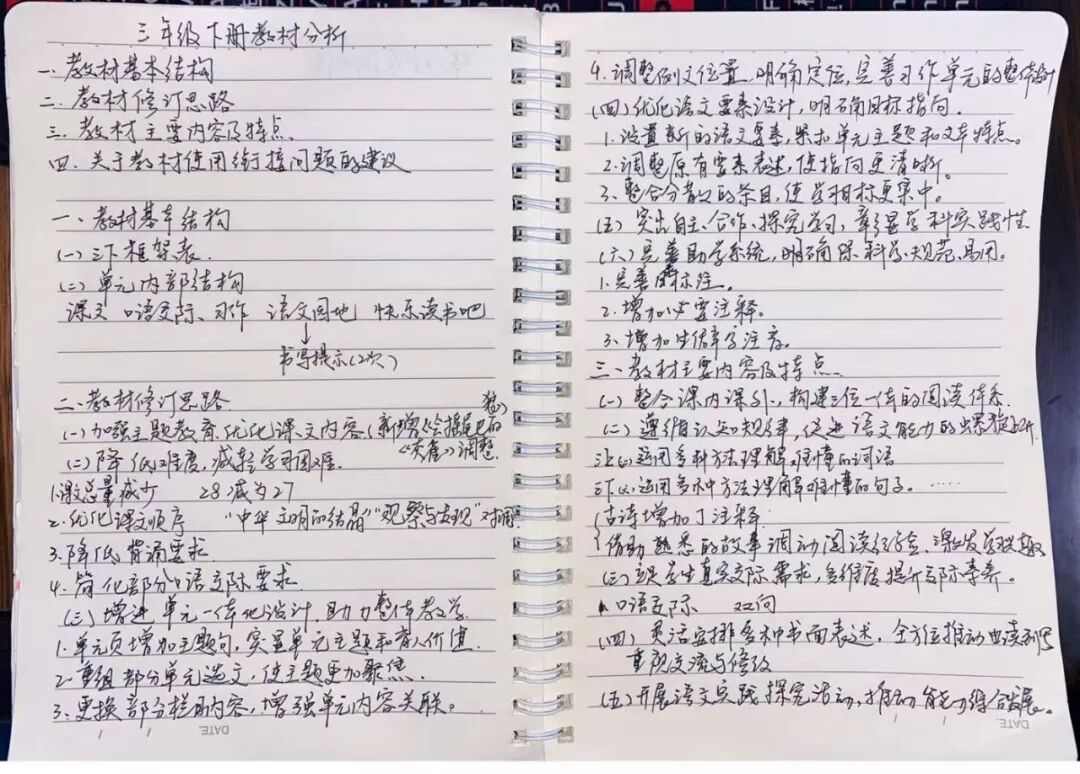 三年级下册教材分析
一、教材基本结构
二、教材修订思路
三、教材主要内容及特点
四、关于教材使用衔接问题的建议
一、教材基本结构
(一)三下框架表.
(二)单元内部结构
课文 口语交际、习作 语文园地 快乐读书吧
书写提示(2次)
二、教材修订思路
(一)加强主题教育,优化课文内容(新增《会摇尾巴的狼》
《赵州桥》调整
(二)降低难度,减轻学习困难.
1.课总量减少 28减为27
2.优化课文顺序 "中华文明的结晶""观察与发现"对调
3.降低背诵要求
4.简化部分口语交际要求
(三)增进单元一体化设计,助力整体教学
1.单元页增加主题句,突显单元主题和育人价值.
2.重组部分单元选文,使主题更加聚焦.
3.更换部分栏目内容,增强单元内容关联。
DATE
4.调整例文位置,明确定位,完善习作单元的整体设计
(四)优化语文要素设计,明确目标指向.
1.设置新的语文要素,紧扣单元主题和文本特点。
2.调整原有要素表述,使指向更清晰。
3、整合分散的条目,使学习目标更集中。
(五)突出自主、合作、探究学习,彰显学科实践性
(六)完善助学系统,明确 科学、规范、易用。
1.完善 标注.
2.增加必要注释。
3、增加生僻字注音。
三、教材主要内容及特点
(一)整合课内课外,构建三位一体的阅读体系.
(二)遵循认知规律,促进语文能力的螺旋上升
三上(1)运用多种方法理解难懂的词语
三下(1).运用多种方法理解难懂的句子。……
古诗增加了注释
借助熟悉的故事调动阅读经验、激发学习兴趣
(三)立足学生真实交际需求,多维度提升交际素养。
口语交际 双向
(四)灵活安排各种书面表述,全方位推动由读到写
重视交流与修改
(五)开展语文实践探究活动,推动能力综合发展。
DATE